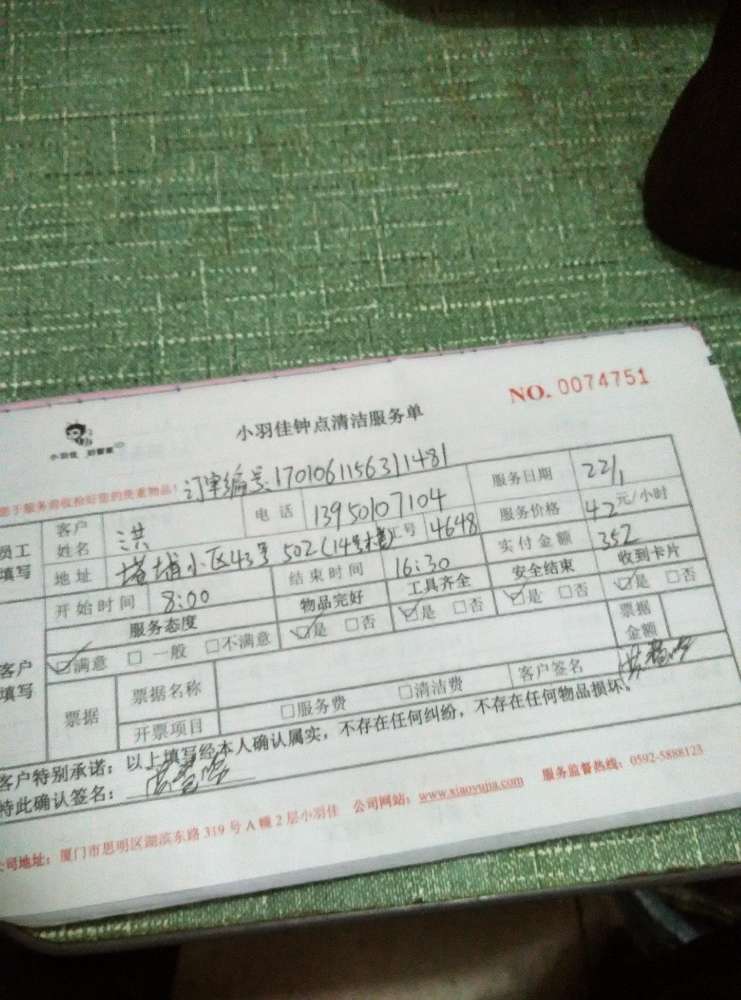 NO. 0074751
小羽佳钟点清洁服务单
小羽佳 好管家
服务前收拾好您的贵重物品! 订单编号:170106115631 1481
员工填写 客户姓名 洪 电话 13950107104 服务日期 22/1
地址 塔埔小区43号502(14号楼) 工号 4648 服务价格 42元/小时
开始时间 8:00 结束时间 16:30 实付金额 352
客户填写 服务态度 物品完好 工具齐全 安全结束 收到卡片
☑满意 □一般 □不满意 ☑是 □否 ☑是 □否 ☑是 □否 ☑是 □否
票据 票据名称 票据金额
开票项目 □服务费 □清洁费 客户签名
客户特别承诺:以上填写经本人确认属实,不存在任何纠纷,不存在任何物品损坏。
特此确认签名:
公司地址:厦门市思明区湖滨东路319号A幢2层小羽佳 公司网站:www.xiaoyujia.com 服务监督热线:0592-5888123